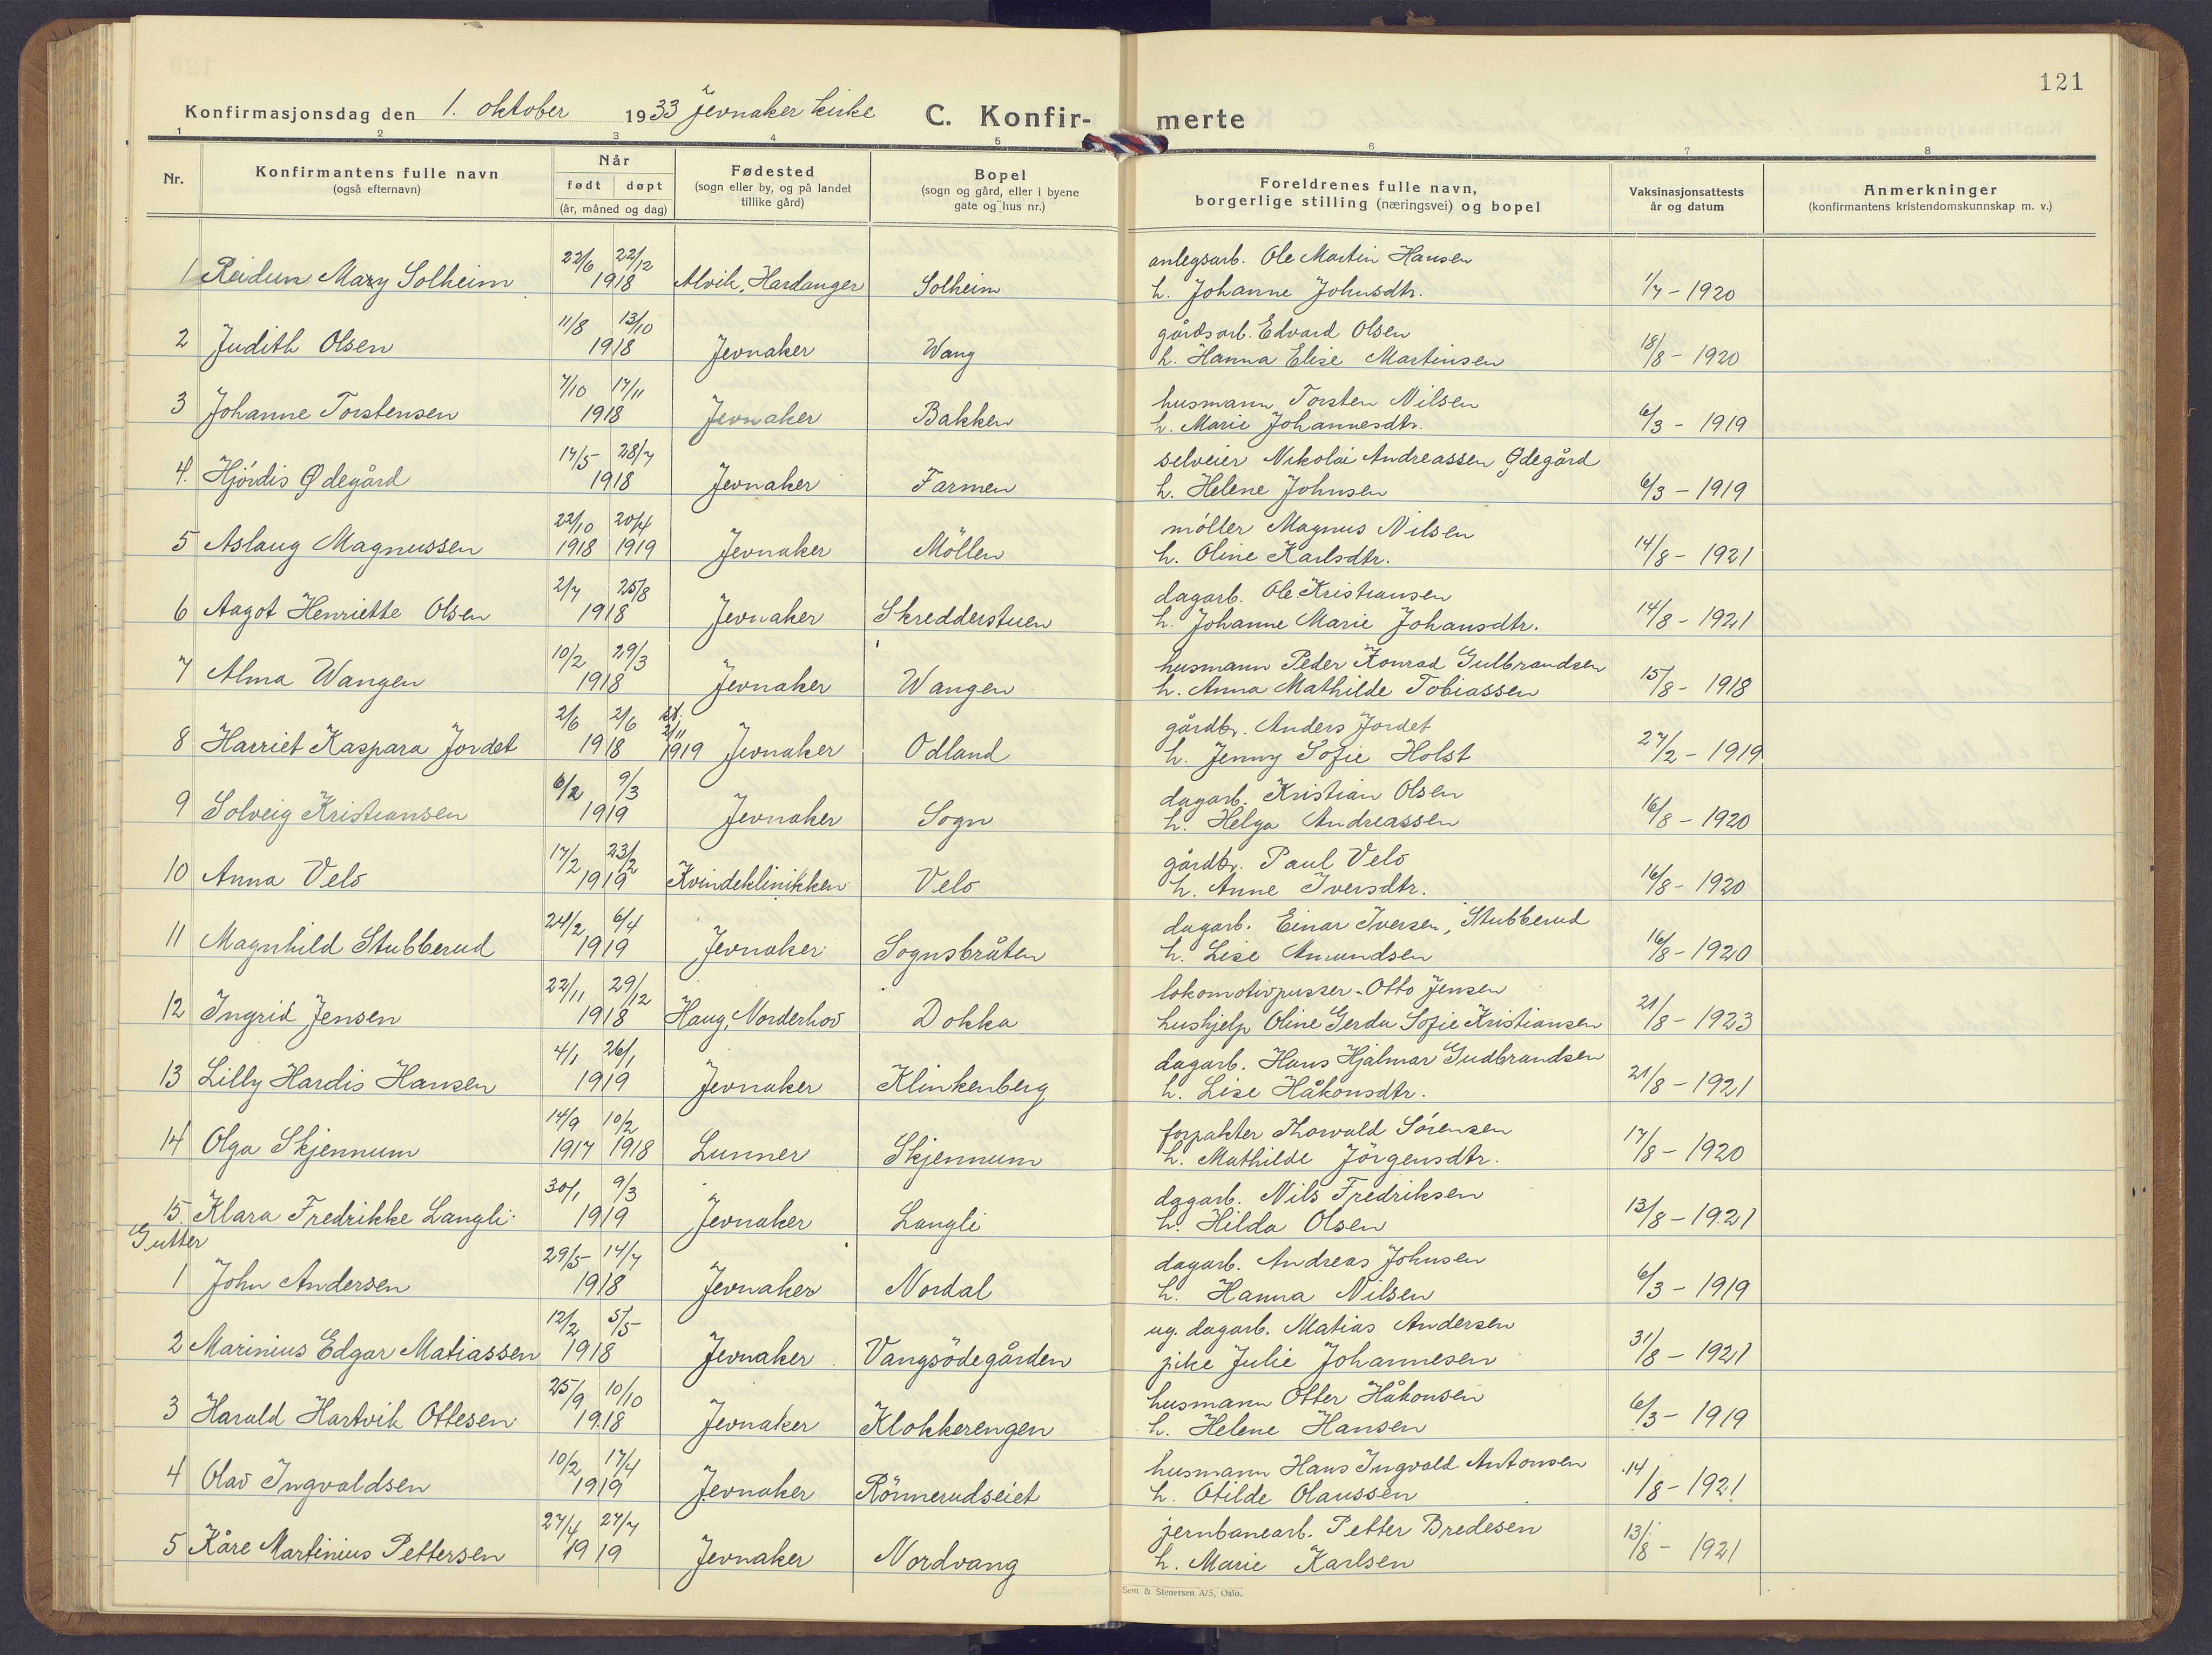 121
Konfirmasjonsdag den 1. oktober 1933 Jevnaker kirke C. Konfir- merte
1 2 3 4 5 6 7 8
Nr. Konfirmantens fulle navn (også efternavn) Når født døpt (år, måned og dag) Fødested (sogn eller by, og på landet tillike gård) Bopel (sogn og gård, eller i byene gate og hus nr.) Foreldrenes fulle navn, borgerlige stilling (næringsvei) og bopel Vaksinasjonsattests år og datum Anmerkninger (konfirmantens kristendomskunnskap m. v.)
22/6 22/12 anlegsarb. Ole Martin Hansen
1 Reidun Mary Solheim 1918 Alvik, Hardanger Solheim h. Johanne Johnsdtr. 1/7 - 1920
11/8 13/10 gårdsarb. Edvard Olsen
2 Judith Olsen 1918 Jevnaker Wang h. Hanna Elise Martinsen 18/8 - 1920
7/10 17/11 husmann Torsten Nilsen
3 Johanne Torstensen 1918 Jevnaker Bakken h. Marie Johannesdtr. 6/3 - 1919
17/5 28/7 selveier Nikolai Andreassen Ødegård
4. Hjördis Ødegård 1918 Jevnaker Farmen h. Helene Johnsen 6/3 - 1919
22/10 20/4 möller Magnus Nilsen
5 Aslaug Magnussen 1918 1919 Jevnaker Möllen h. Oline Karlsdtr. 14/8 - 1921
2/7 25/8 dagarb. Ole Kristiansen
6 Aagot Henriette Olsen 1918 Jevnaker Skredderstuen h. Johanne Marie Johansdtr. 14/8 - 1921
10/2 29/3 husmann Peder Konrad Gulbrandsen
7 Alma Wangen 1918 Jevnaker Wangen h. Anna Mathilde Tobiassen 15/8 - 1918
2/6 2/6 2/11 gårdbr. Anders Jordet
8 Harriet Kaspara Jordet 1918 1919 Jevnaker Odland h. Jenny Sofie Holst 27/2 - 1919
6/2 9/3 dagarb. Kristian Olsen
9 Solveig Kristiansen 1919 Jevnaker Sogn h. Helga Andreassen 16/8 - 1920
17/2 23/2 gårdbr. Paul Velo
10 Anna Velo 1919 Kvindeklinikken Velo h. Anne Iversdtr. 16/8 - 1920
24/2 6/4 dagarb. Einar Iversen, Stubberud
11 Magnhild Stubberud 1919 Jevnaker Sognsbråten h. Lise Amundsen 16/8 - 1920
22/11 29/12 lokomotivpusser - Otto Jensen
12 Ingrid Jensen 1918 Haug, Norderhov Dokka hushjelp Oline Gerda Sofie Kristiansen 21/8 - 1923
4/1 26/1 dagarb. Hans Hjalmar Gudbrandsen
13 Lilly Hardis Hansen 1919 Jevnaker Klinkenberg h. Lise Håkonsdtr. 21/8 - 1921
14/9 10/2 forpakter Thorvald Sörensen
14 Olga Skjennum 1917 1918 Lunner Skjennum h. Mathilde Jörgensdtr. 17/8 - 1920
30/1 9/3 dagarb. Nils Fredriksen
15. Klara Fredrikke Langli 1919 Jevnaker Langli h. Hilda Olsen 13/8 - 1921
Gutter
29/5 14/7 dagarb. Andreas Johnsen
1 John Andersen 1918 Jevnaker Nordal h. Hanna Nilsen 6/3 - 1919
12/2 5/5 ug. dagarb. Matias Andersen
2 Marinius Edgar Matiassen 1918 Jevnaker Vangsödegården pike Julie Johannesen 31/8 - 1921
25/9 10/10 husmann Otter Håkonsen
3 Harald Hartvik Ottesen 1918 Jevnaker Klokkerengen h. Helene Hansen 6/3 - 1919
10/2 17/4 husmann Hans Ingvald Antonsen
4 Olav Ingvaldsen 1919 Jevnaker Rönnerudseiet h. Otilde Olaussen 14/8 - 1921
27/4 27/7 jernbanearb. Petter Bredesen
5 Kåre Martinius Pettersen 1919 Jevnaker Nordvang h. Marie Karlsen 13/8 - 1921
Sem & Stenersen A/S, Oslo.